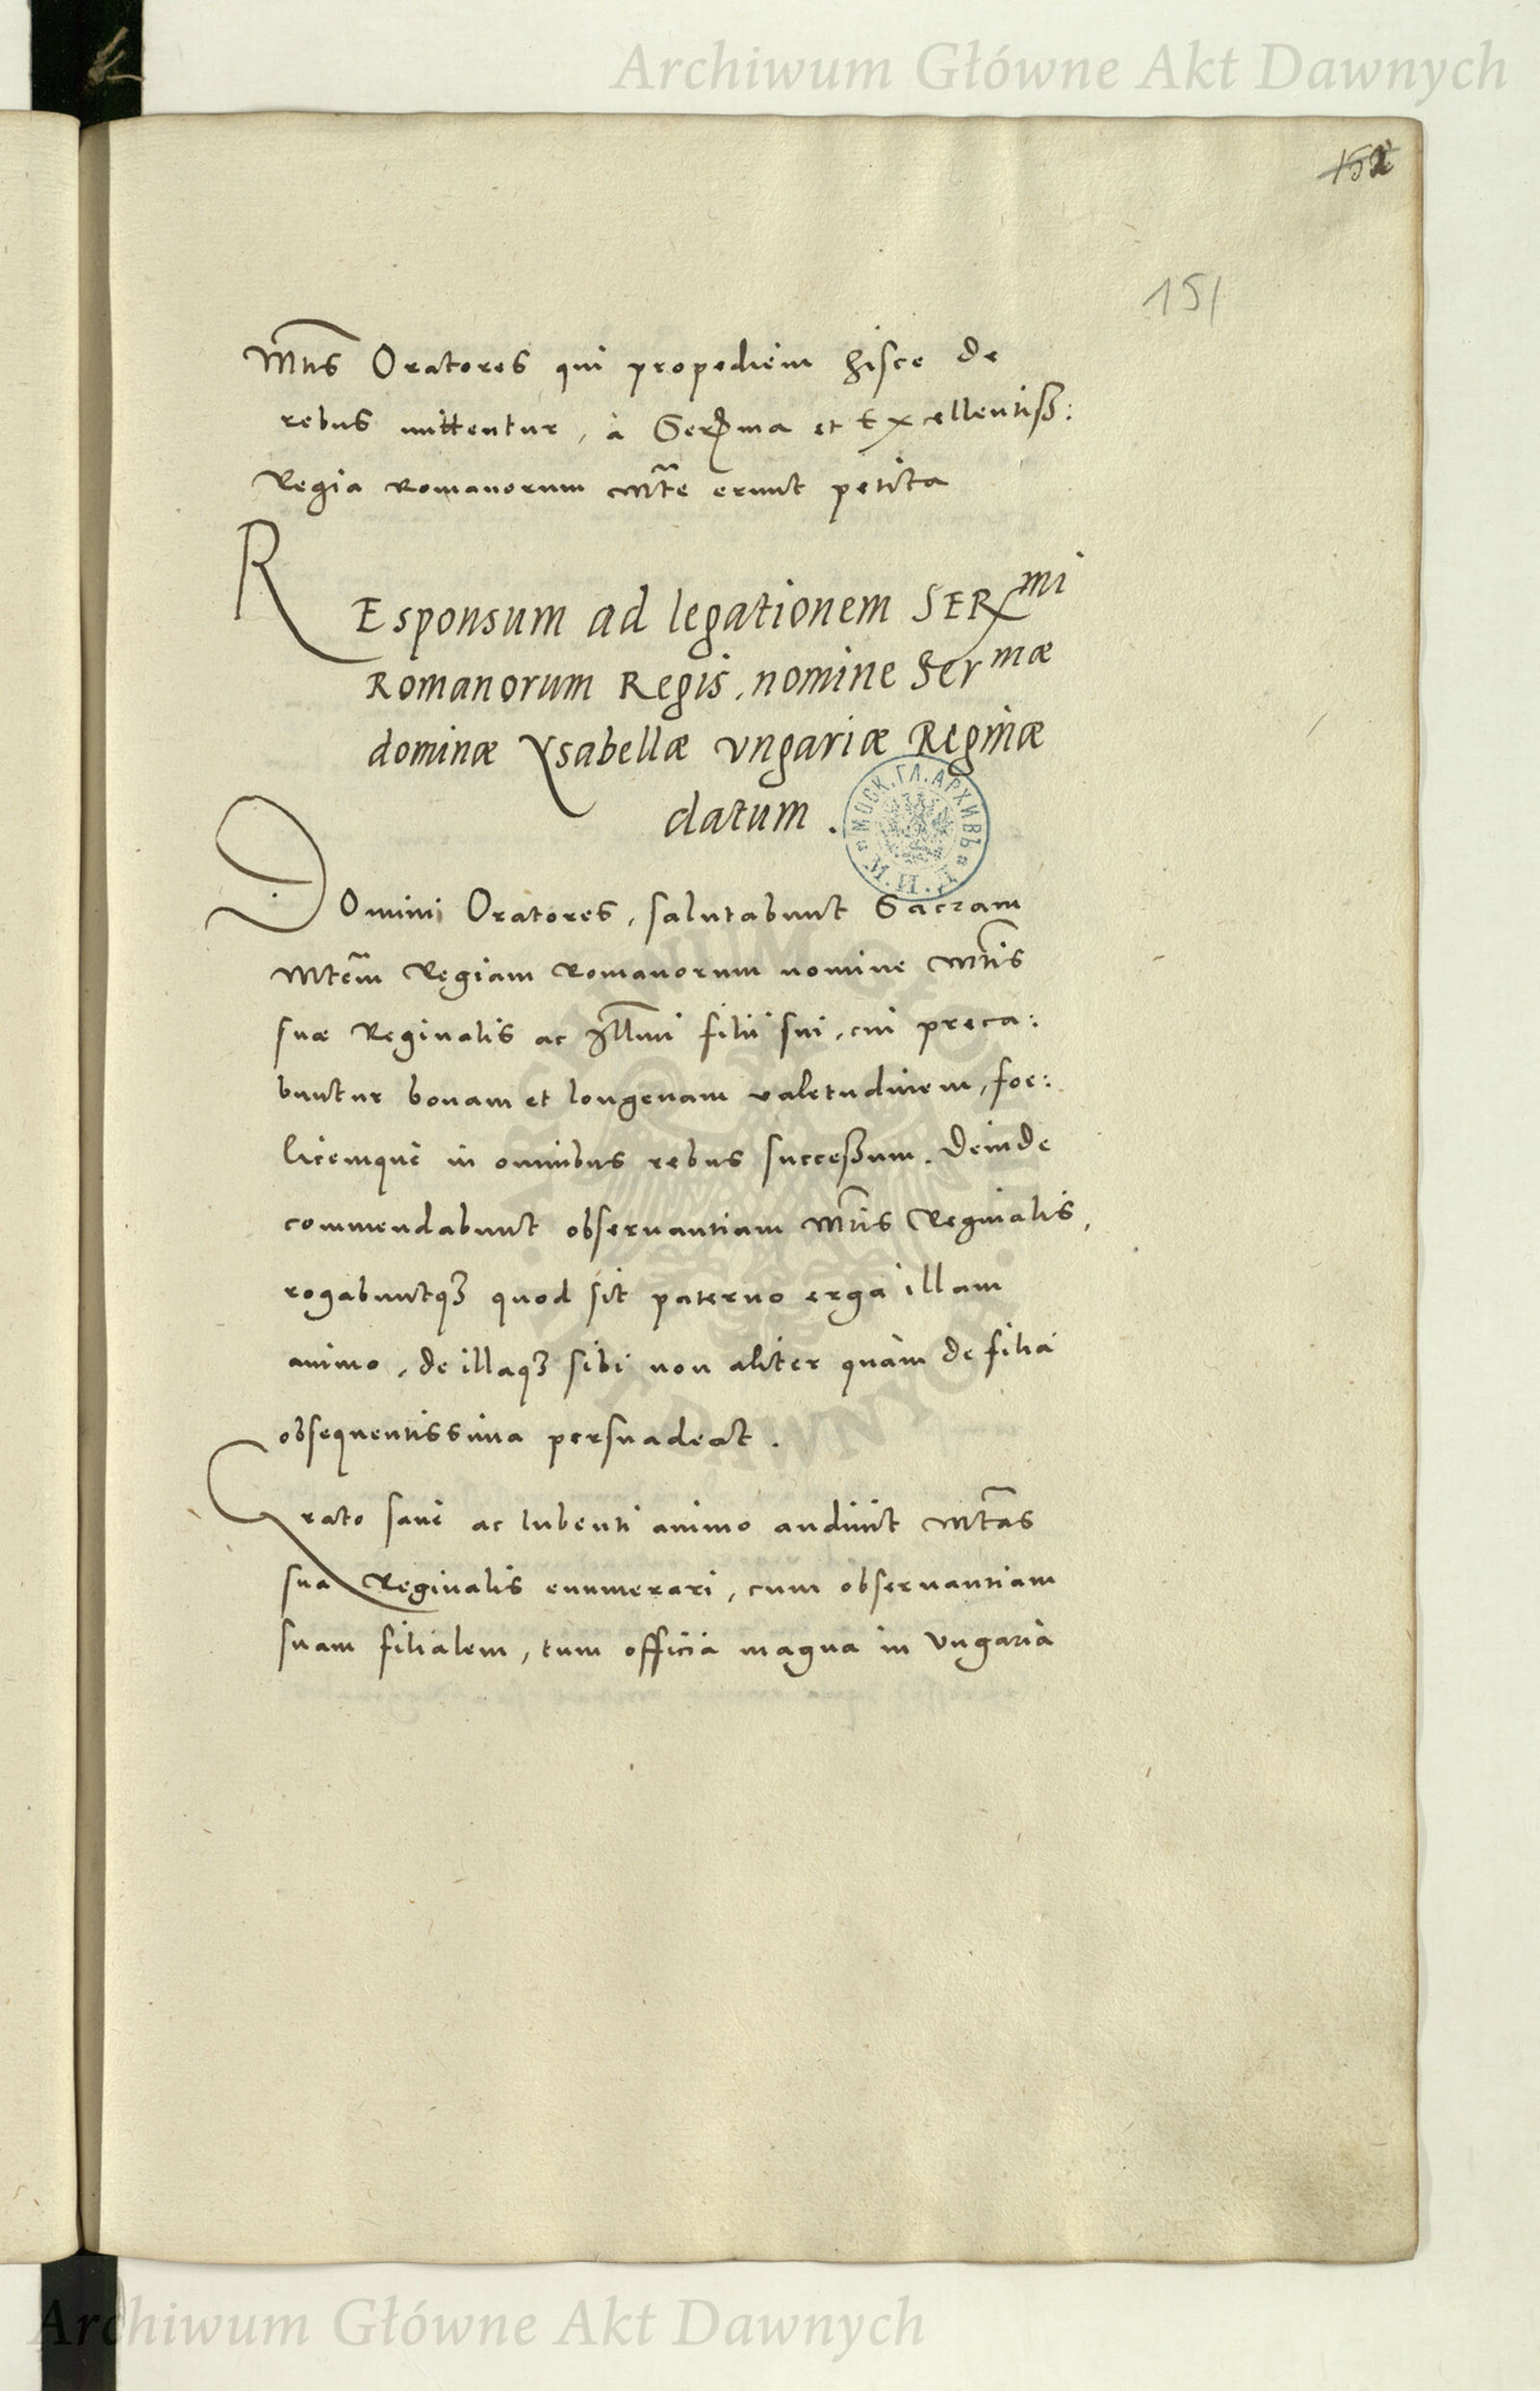 Archiwum Główne Akt Dawnych
151
Mtis Oratores qui propediem hisce de
rebus mittentur, à Serma et Excellentiß:
Regia Romanorum Mte erunt petita
REsponsum ad legationem SERmi
Romanorum Regis, nomine Sermæ
dominæ Ysabellæ Vngariæ Reginæ
datum.
МОСК. ГЛ. АРХИВЪ
DOmini Oratores, salutabunt Sacram
Mtem Regiam Romanorum nomine Mtis
suæ Reginalis ac Illmi filii sui, cui preca:
buntur bonam et longeuam valetudinem, foe:
licemque in omnibus rebus successum. Deinde
commendabunt obseruantiam Mtis Reginalis,
rogabuntqȝ quod sit paterno erga illam
animo, de illaqȝ sibi non aliter quàm de filia
obsequentissima persuadeat.
Grato sane ac lubenti animo audiuit Mtas
sua Reginalis enumerari, cum obseruantiam
suam filialem, tum officia magna in Vngaria
Archiwum Główne Akt Dawnych